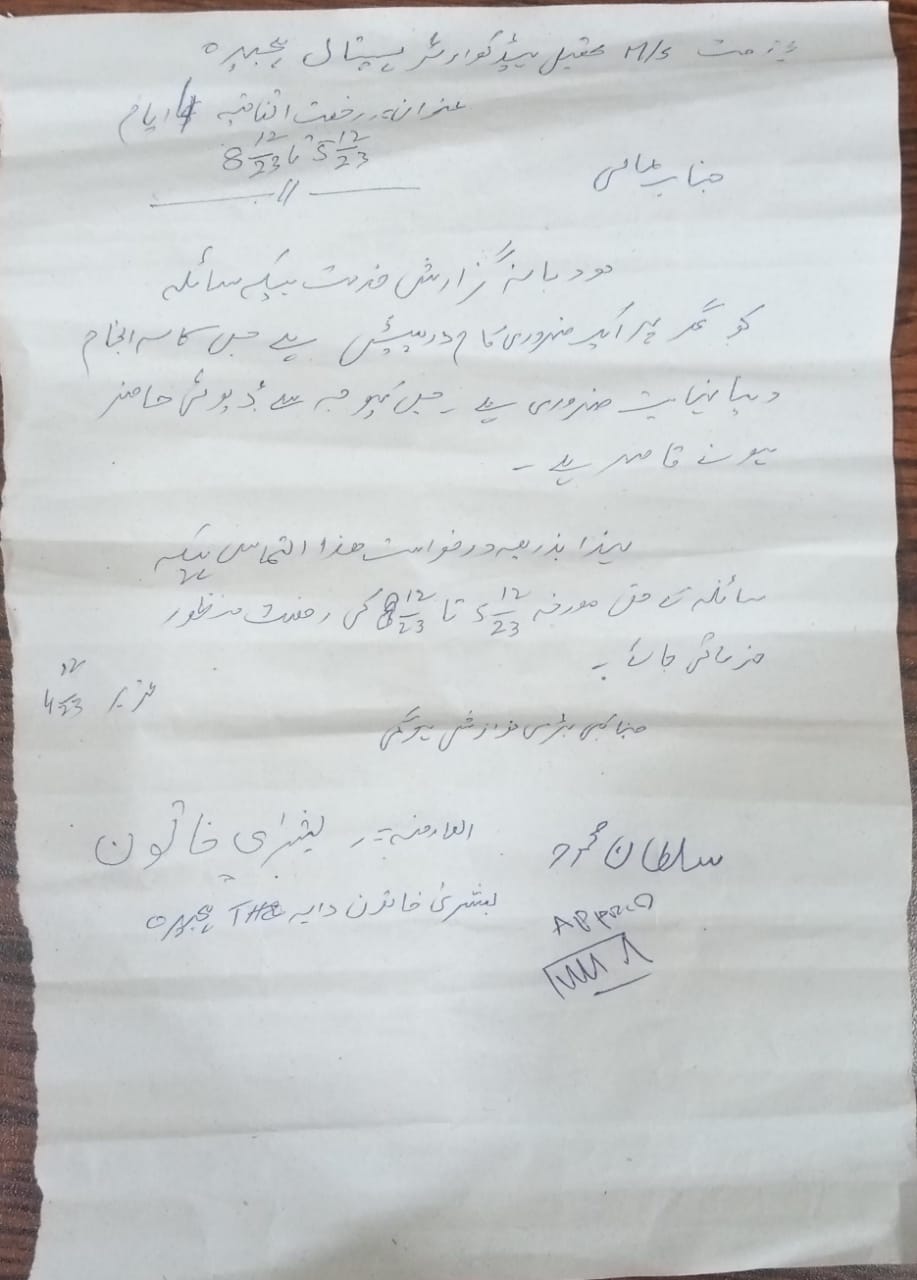 بخدمت M/S تحصیل ہیڈ کوارٹر ہسپتال ہجیرہ
عنوان:۔ رخصت اتفاقیہ 4 ایام
5 12/23 تا 8 12/23
جناب عالی
مودبانہ گزارش خدمت ہیکہ سائلہ
کو گھر پر ایک ضروری کام درپیش ہے جس کا سر انجام
دینا نہایت ضروری ہے ۔ جس کیوجہ سے ڈیوٹی حاضر
ہونے قاصر ہے ۔
لہذا بذریعہ درخواست ھذا التماس ہیکہ
سائلہ کے حق مورخہ 5 12/23 تا 8 12/23 کی رخصت منظور
فرمائی جائے ۔
جناب کی بڑی نوازش ہوگی
تحریر 4 12/23
العارضہ:۔ بشریٰ خاتون
بشریٰ خاتون دایہ THQ ہجیرہ
سلطان محمود